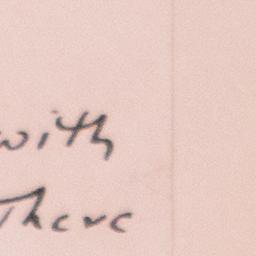 with
There